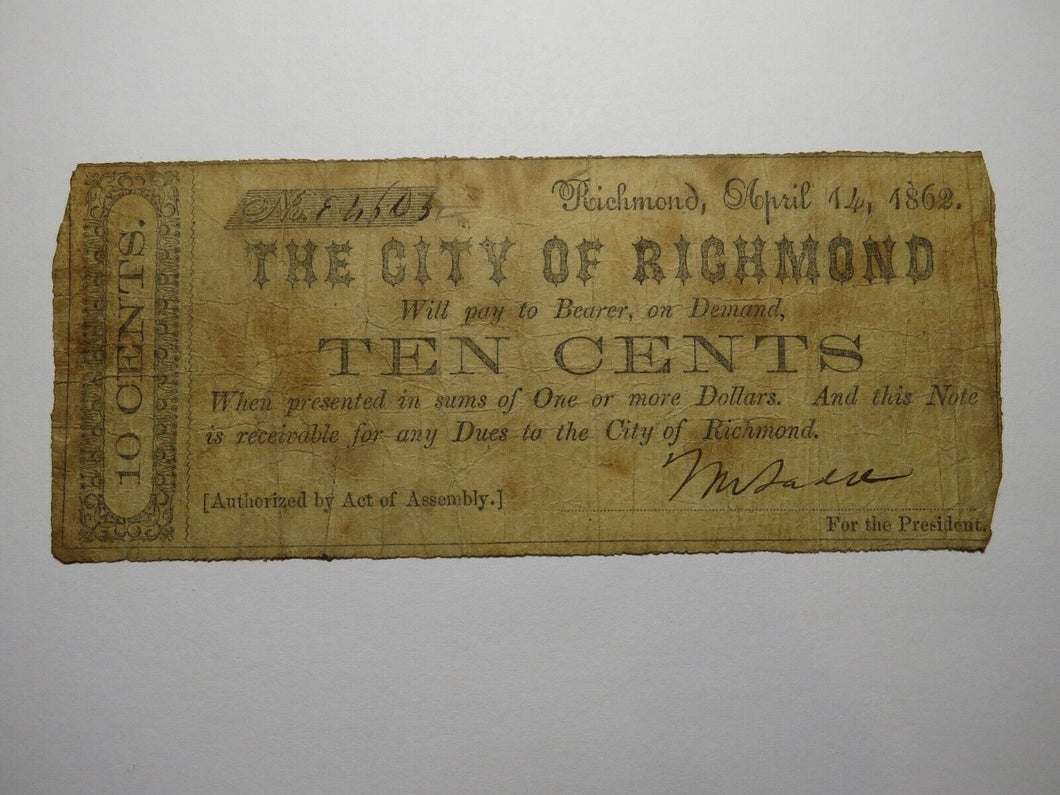 10 CENTS.
No.
Richmond, April 14, 1862.
THE CITY OF RICHMOND
Will pay to Bearer, on Demand,
TEN CENTS
When presented in sums of One or more Dollars. And this Note
is receivable for any Dues to the City of Richmond.
[Authorized by Act of Assembly.]
For the President.